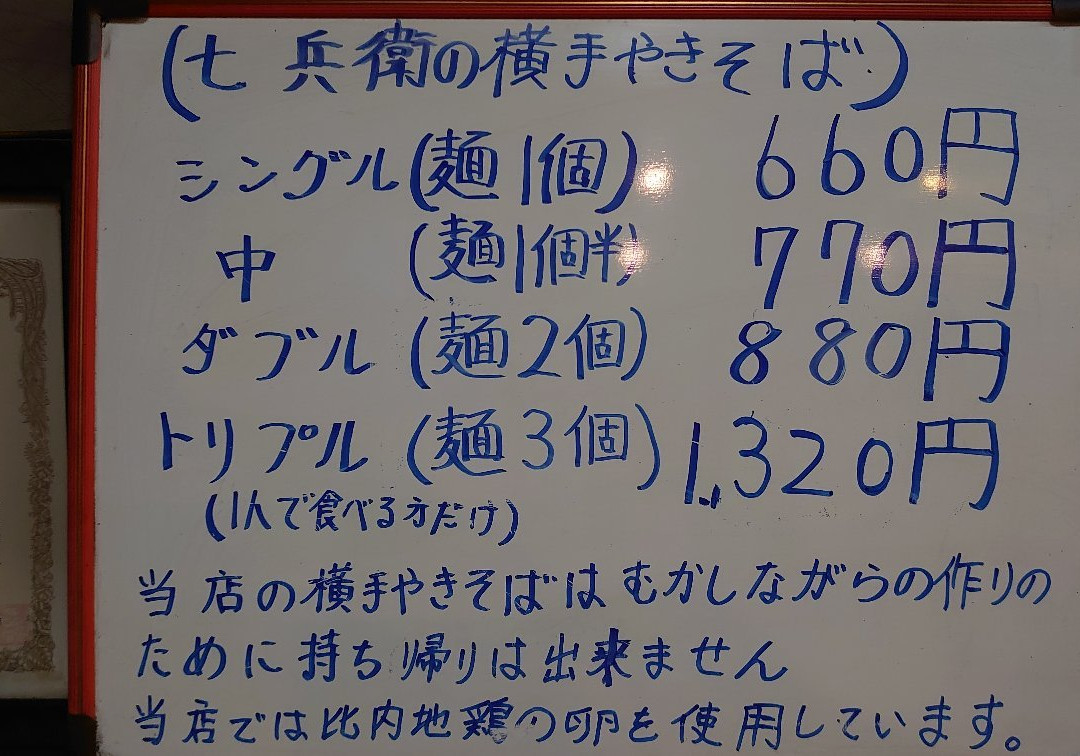 (七兵衛の横手やきそば)
シングル(麺1個) 660円
中 (麺1個半) 770円
ダブル(麺2個) 880円
トリプル(麺3個) 1,320円
(1人で食べる方だけ)
当店の横手やきそばはむかしながらの作りの
ために持ち帰りは出来ません
当店では比内地鶏の卵を使用しています。